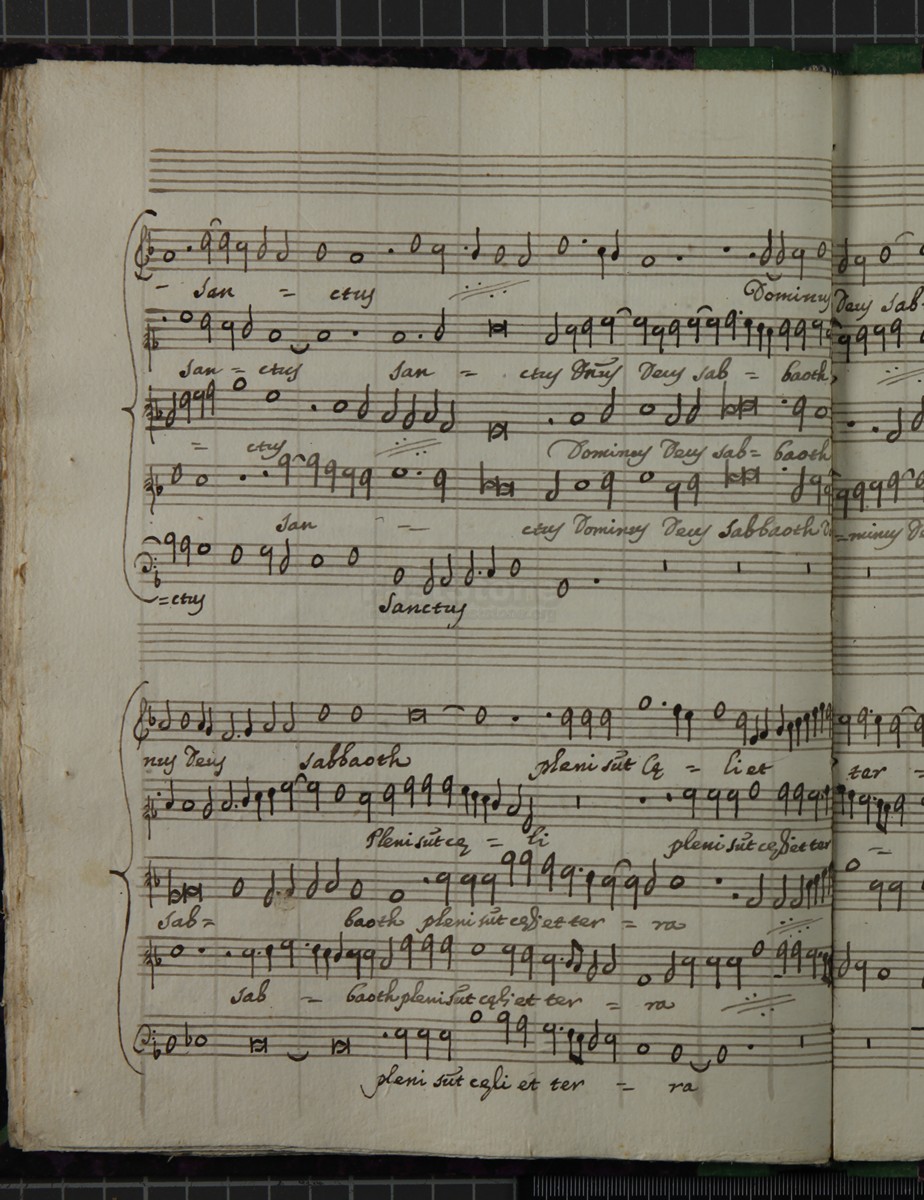 - San = ctus Dominus Deus Sab-
San = ctus San = ctus Dn̄us Deus sab = baoth
= ctus Dominus Deus sab= baoth
San - ctus Dominus Deus Sabbaoth Do=minus De
=ctus Sanctus
nus Deus sabbaoth pleni sūt Cę = li et ter =
Pleni sūt cę = li pleni sūt cęli et ter =
sab= baoth pleni sūt cęli et ter = ra
sab = baoth pleni sūt cęli et ter = ra
pleni sūt cęli et ter = ra